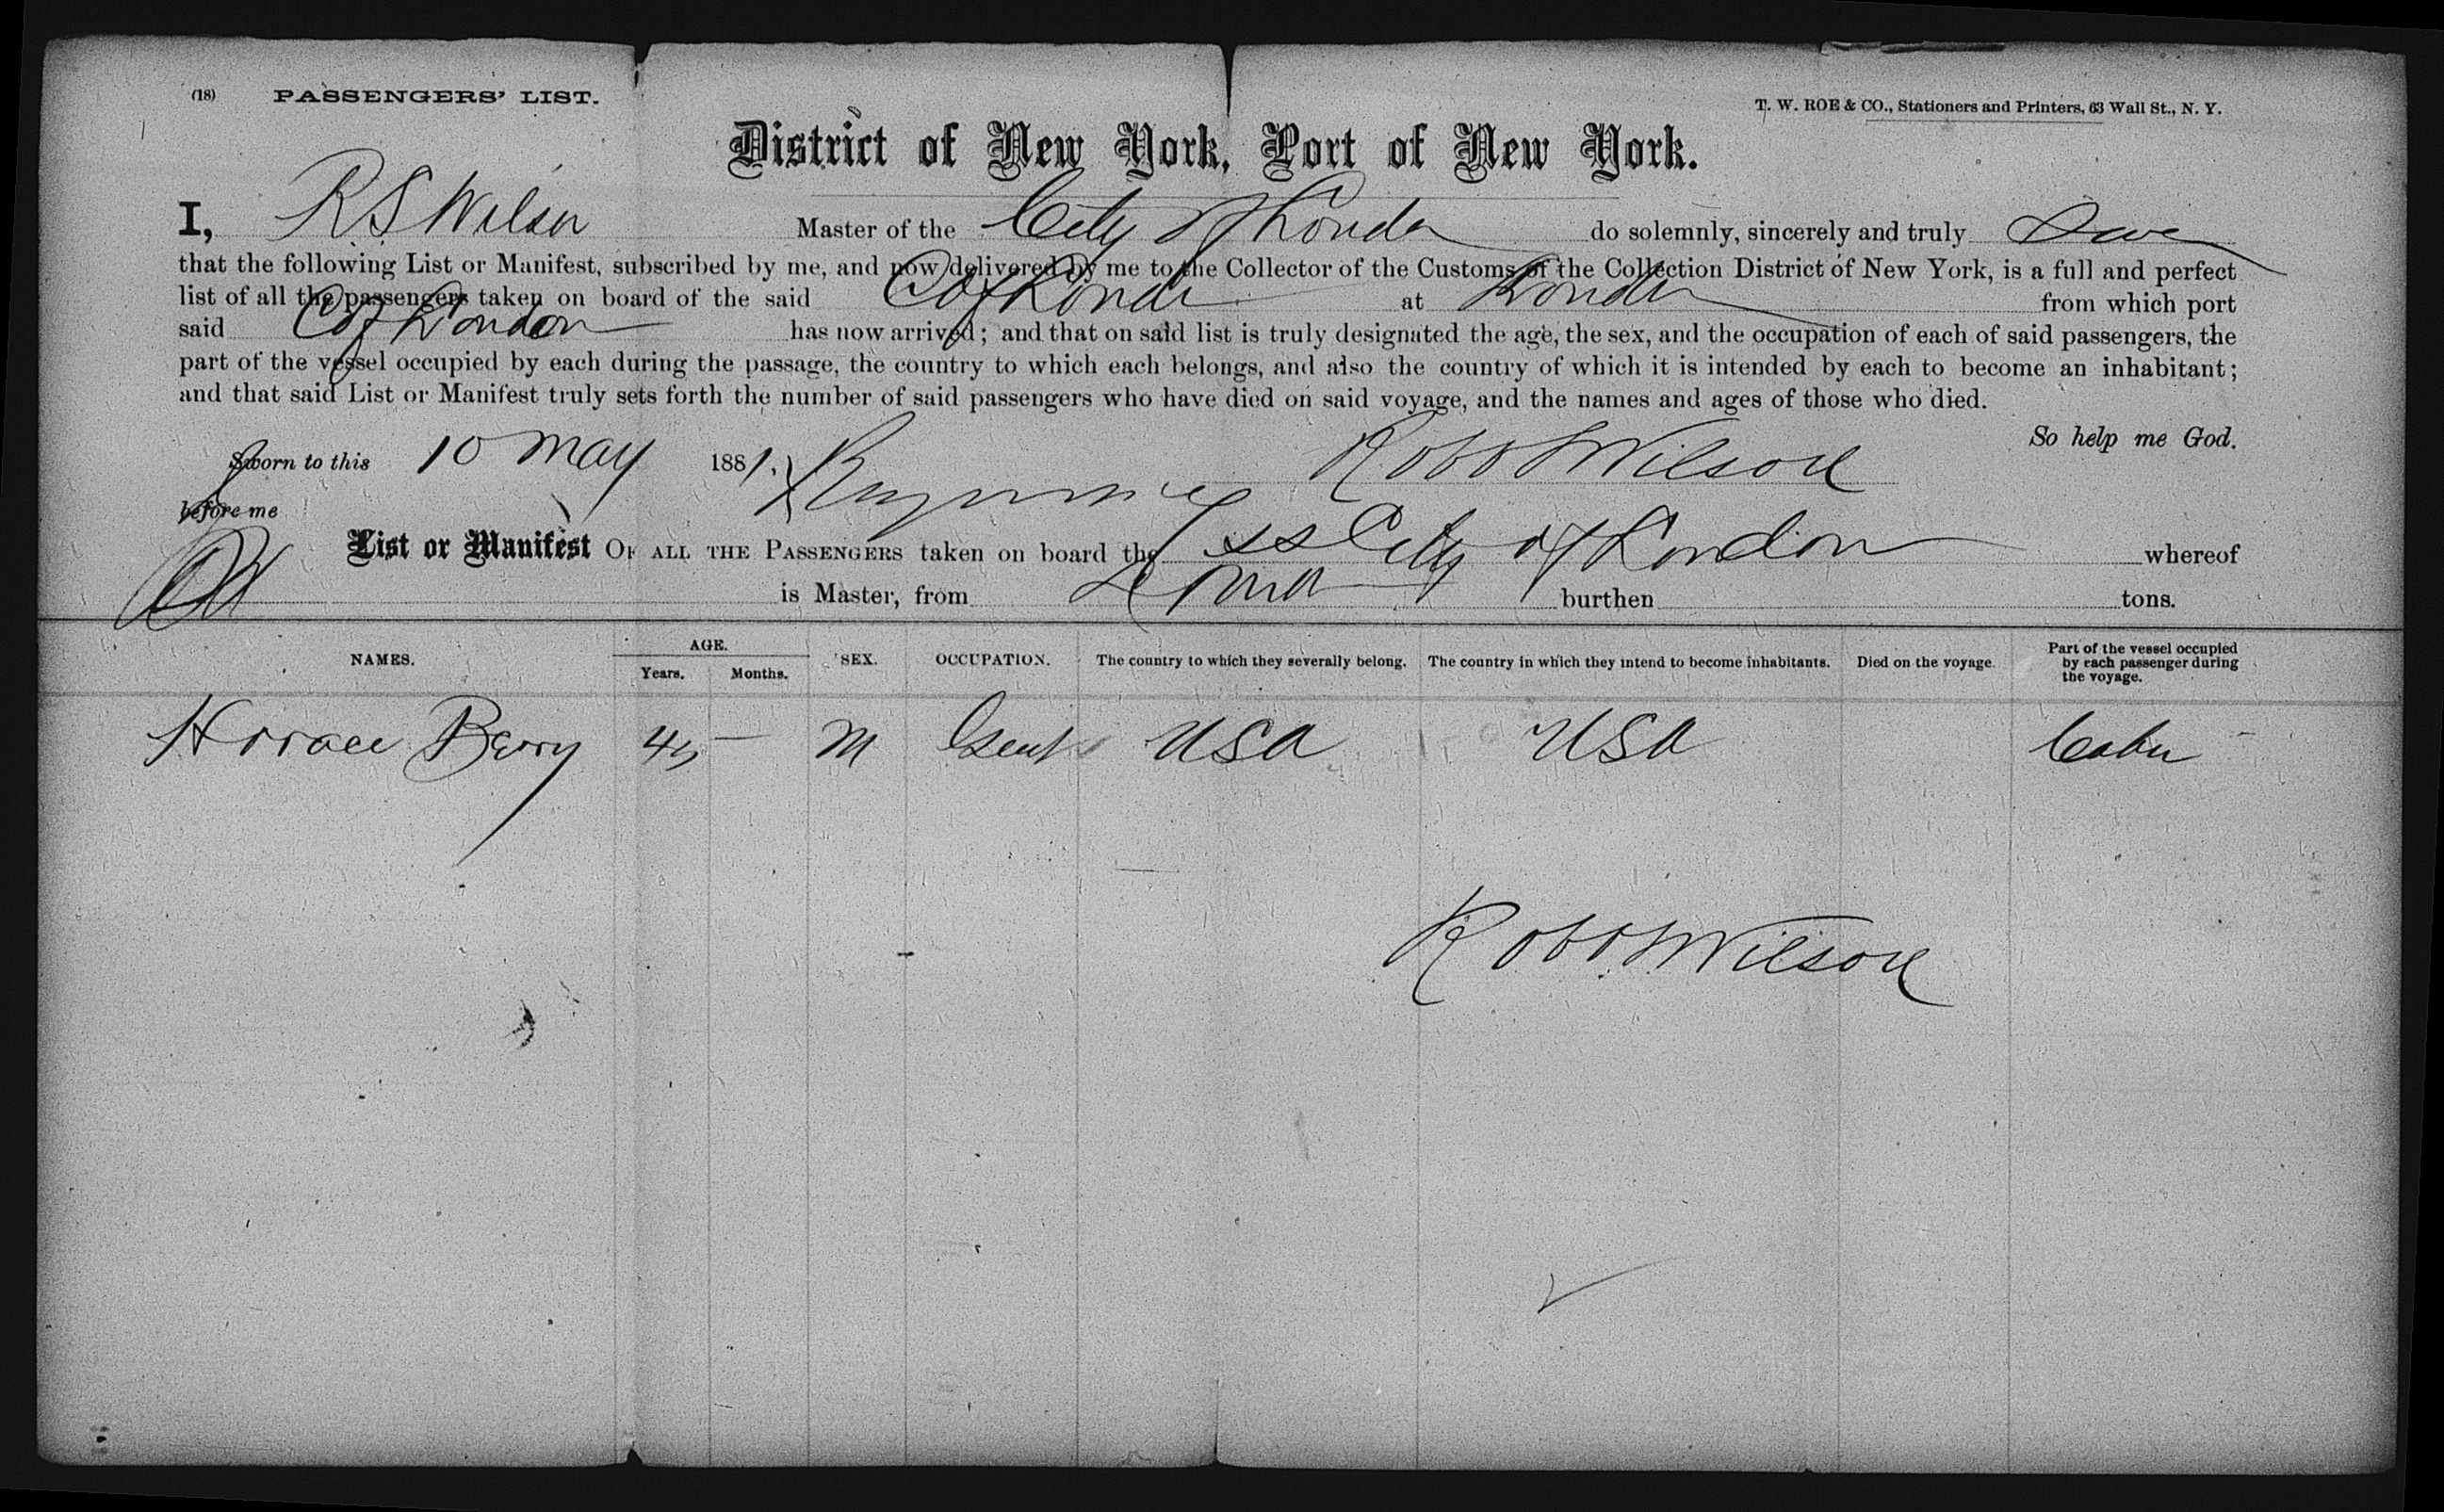 (18) PASSENGERS' LIST.
T. W. ROE & CO., Stationers and Printers, 63 Wall St., N. Y.
District of New York, Port of New York.
I, R S Wilson Master of the City of London do solemnly, sincerely and truly Swear
that the following List or Manifest, subscribed by me, and now delivered by me to the Collector of the Customs of the Collection District of New York, is a full and perfect
list of all the passengers taken on board of the said C of London at London from which port
said C of London has now arrived; and that on said list is truly designated the age, the sex, and the occupation of each of said passengers, the
part of the vessel occupied by each during the passage, the country to which each belongs, and also the country of which it is intended by each to become an inhabitant;
and that said List or Manifest truly sets forth the number of said passengers who have died on said voyage, and the names and ages of those who died.
So help me God.
Sworn to this 10 May 1881. Robt S Wilson
before me
List or Manifest OF ALL THE PASSENGERS taken on board the SS City of London whereof
is Master, from London burthen tons.
NAMES. AGE. Years. Months. SEX. OCCUPATION. The country to which they severally belong. The country in which they intend to become inhabitants. Died on the voyage. Part of the vessel occupied by each passenger during the voyage.
Horace Berry 45 — M Gent USA USA Cabin
Robt S Wilson